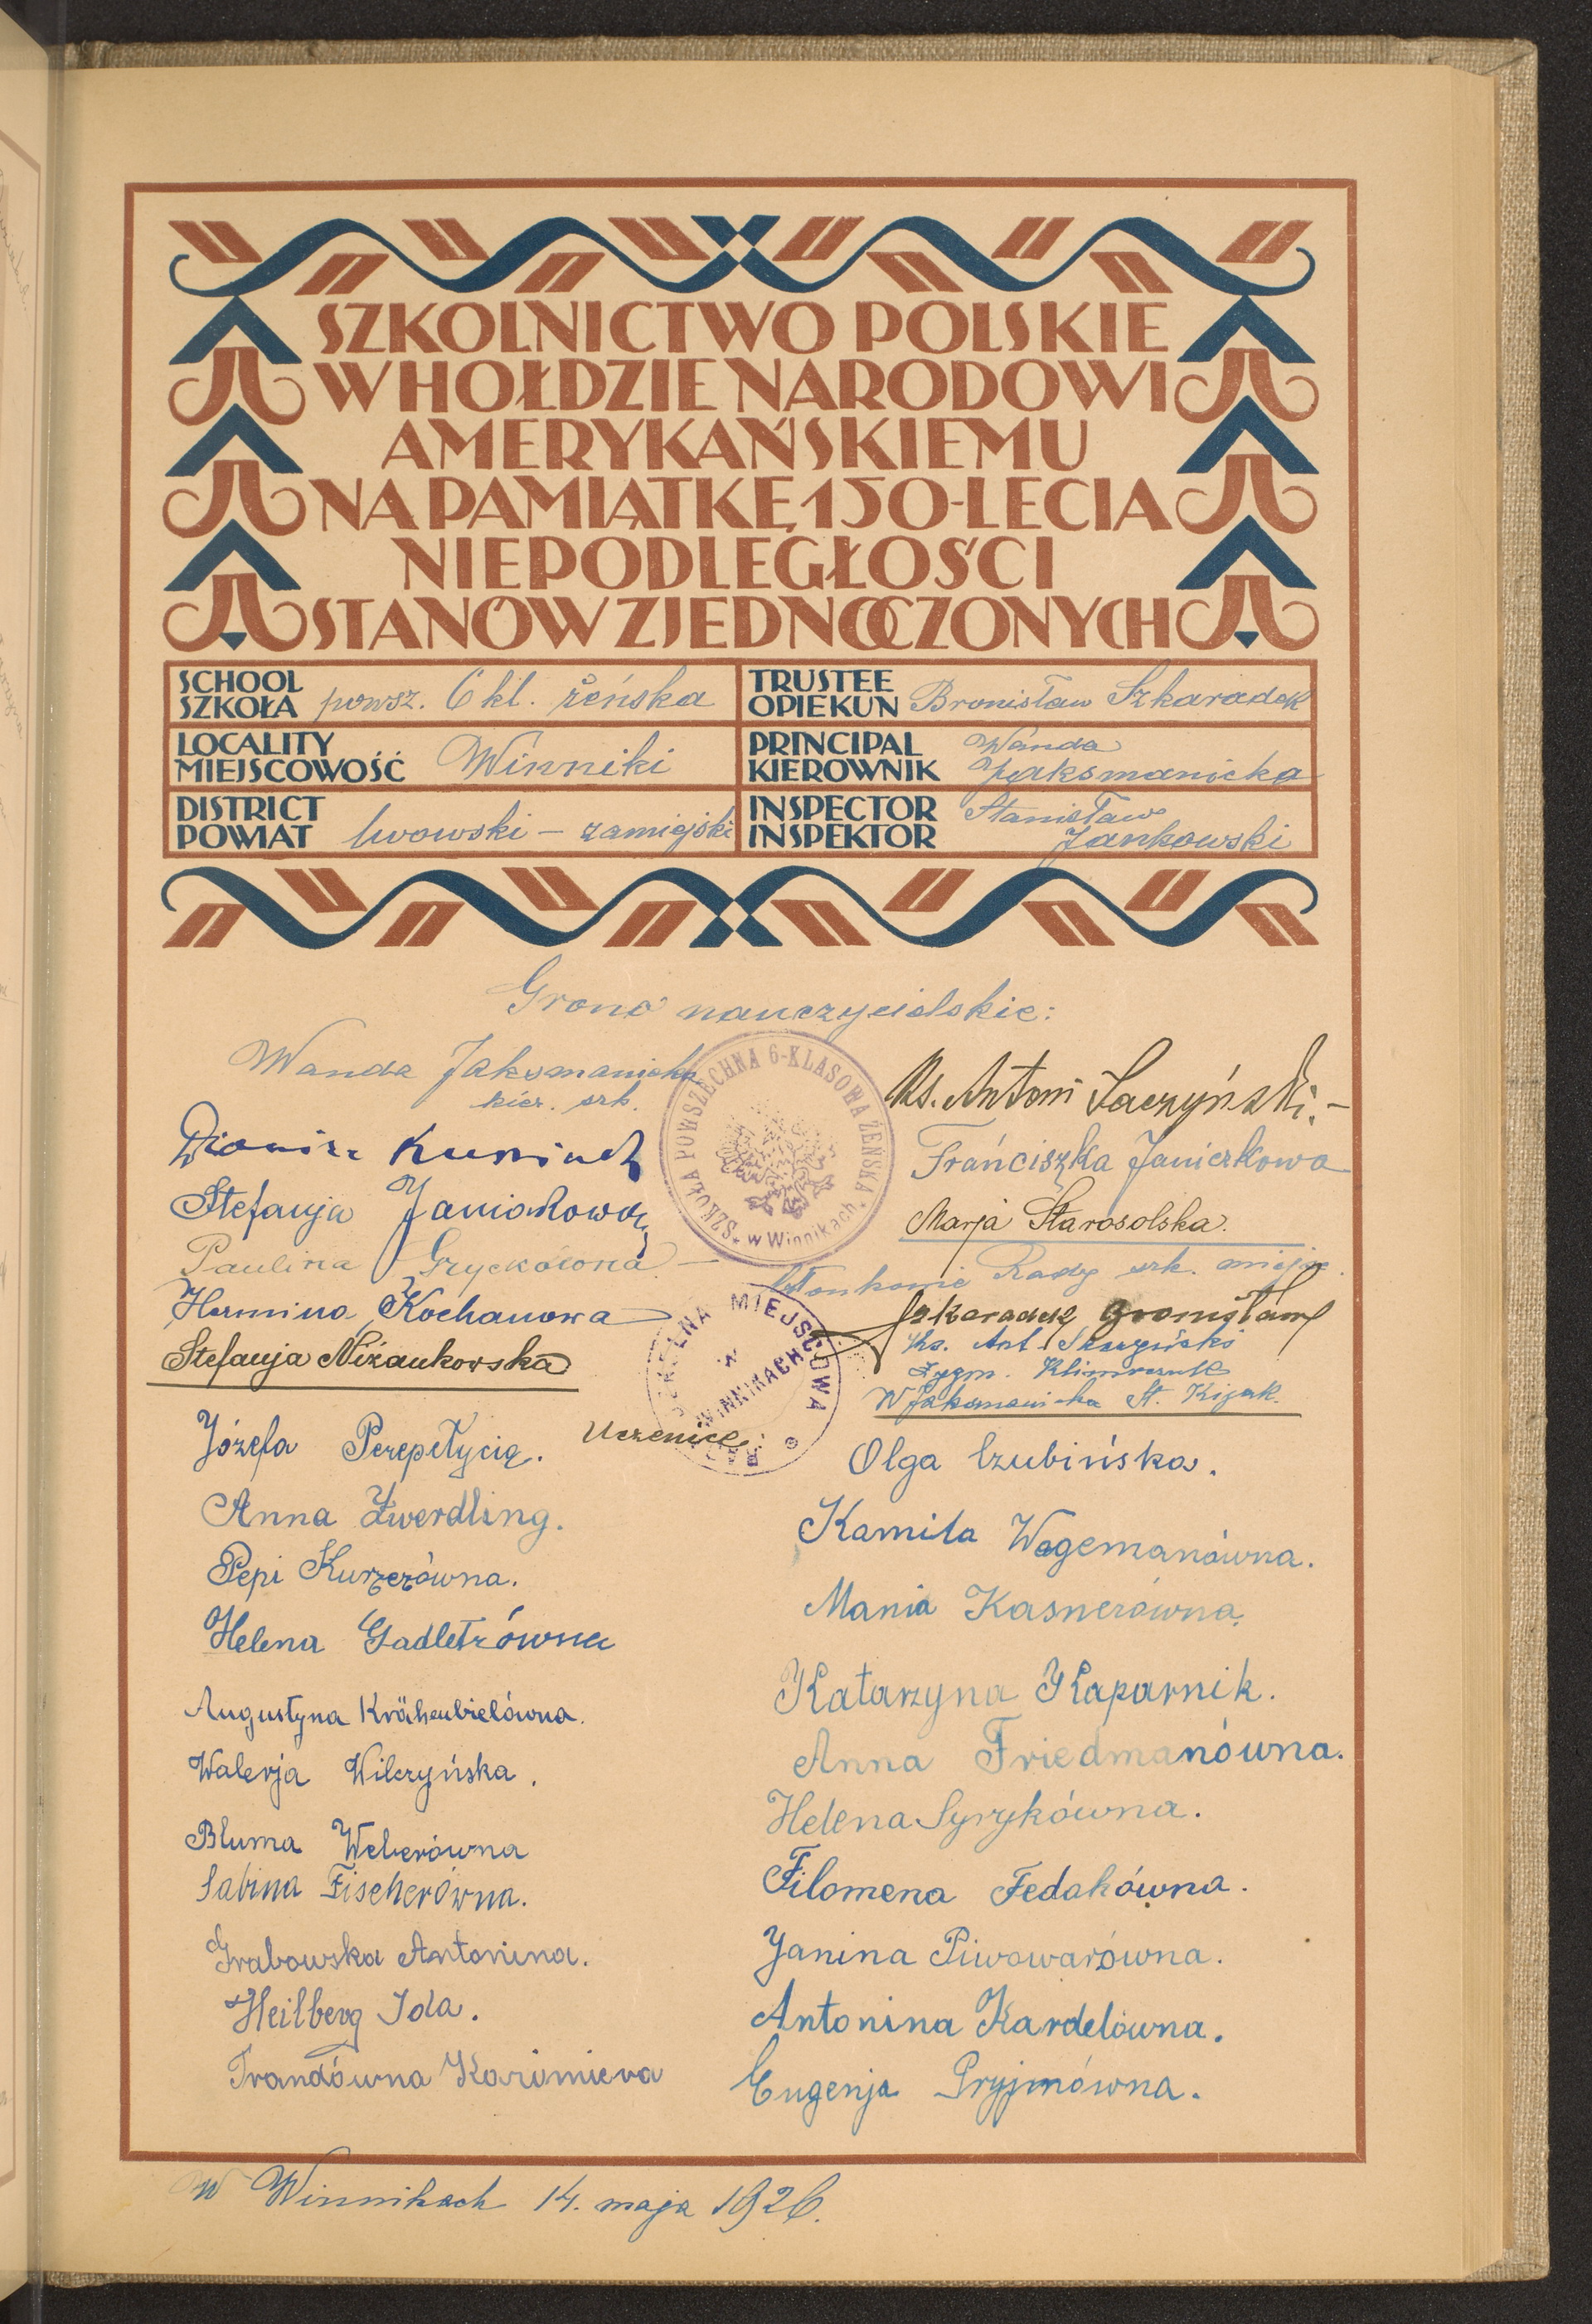 SZKOLNICTWO POLSKIE
W HOŁDZIE NARODOWI
AMERYKAŃSKIEMU
NA PAMIĄTKĘ 150-LECIA
NIEPODLEGŁOŚCI
STANÓW ZJEDNOCZONYCH
SCHOOL
SZKOŁA powsz. 6 kl. żeńska
TRUSTEE
OPIEKUN Bronisław Szkaradek
LOCALITY
MIEJSCOWOŚĆ Winniki
PRINCIPAL
KIEROWNIK Wanda
Jaksmanicka
DISTRICT
POWIAT lwowski – zamiejski
INSPECTOR
INSPEKTOR Stanisław
Jankowski
Grono nauczycielskie:
Wanda Jaksmanicka
kier. szk.
Stefanja
Paulina Gryckówna
Hermina Kochanowa
Stefanja Niżankowska
SZKOŁA POWSZECHNA 6-KLASOWA ŻEŃSKA
w Winnikach
Ks. Antoni
Franciszka Janiczkowa
Marja Starosolska.
Członkowie Rady szk. miejsc.
Szkaradek Bronisław
Ks. Ant.
Zygm.
W Jaksmanicka St. Kijak.
SZKOLNA MIEJSCOWA
W
WINNIKACH
RADA
Uczenice:
Józefa Perepełycią.
Anna Zwerdling.
Pepi Kurzerówna.
Helena Gadletrówna
Augustyna Krähenbielówna.
Walerja Wilczyńska.
Bluma Weberówna
Sabina Fischerówna.
Grabowska Antonina.
Heilberg Ida.
Olga Czubińska.
Kamila Wagemanówna.
Mania Kasnerówna.
Katarzyna Kaparnik.
Anna Friedmanówna.
Helena Syrykówna.
Filomena Fedakówna.
Janina Piwowarówna.
Antonina Kardelówna.
Eugenja Pryjmówna.
W Winnikach 14. maja 1926.